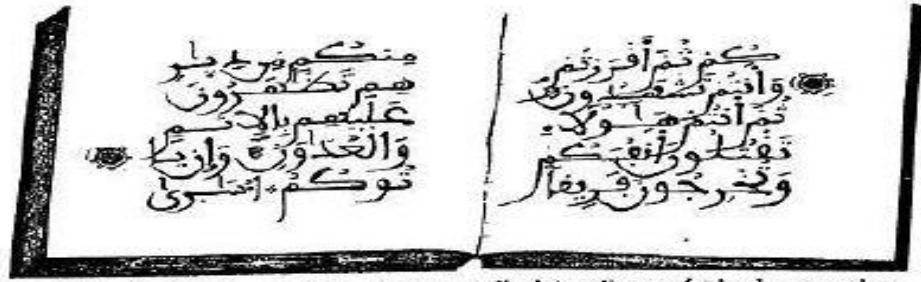 كم ثم أقررتم
وأنتم تشهدون
ثم أنتم هـؤلاء
تقتلون أنفسكم
وتخرجون فريقا
منكم من ديـر
هم تظهرون
عليهم بالاثـم
والعدون وإن يا
توكم أسرى